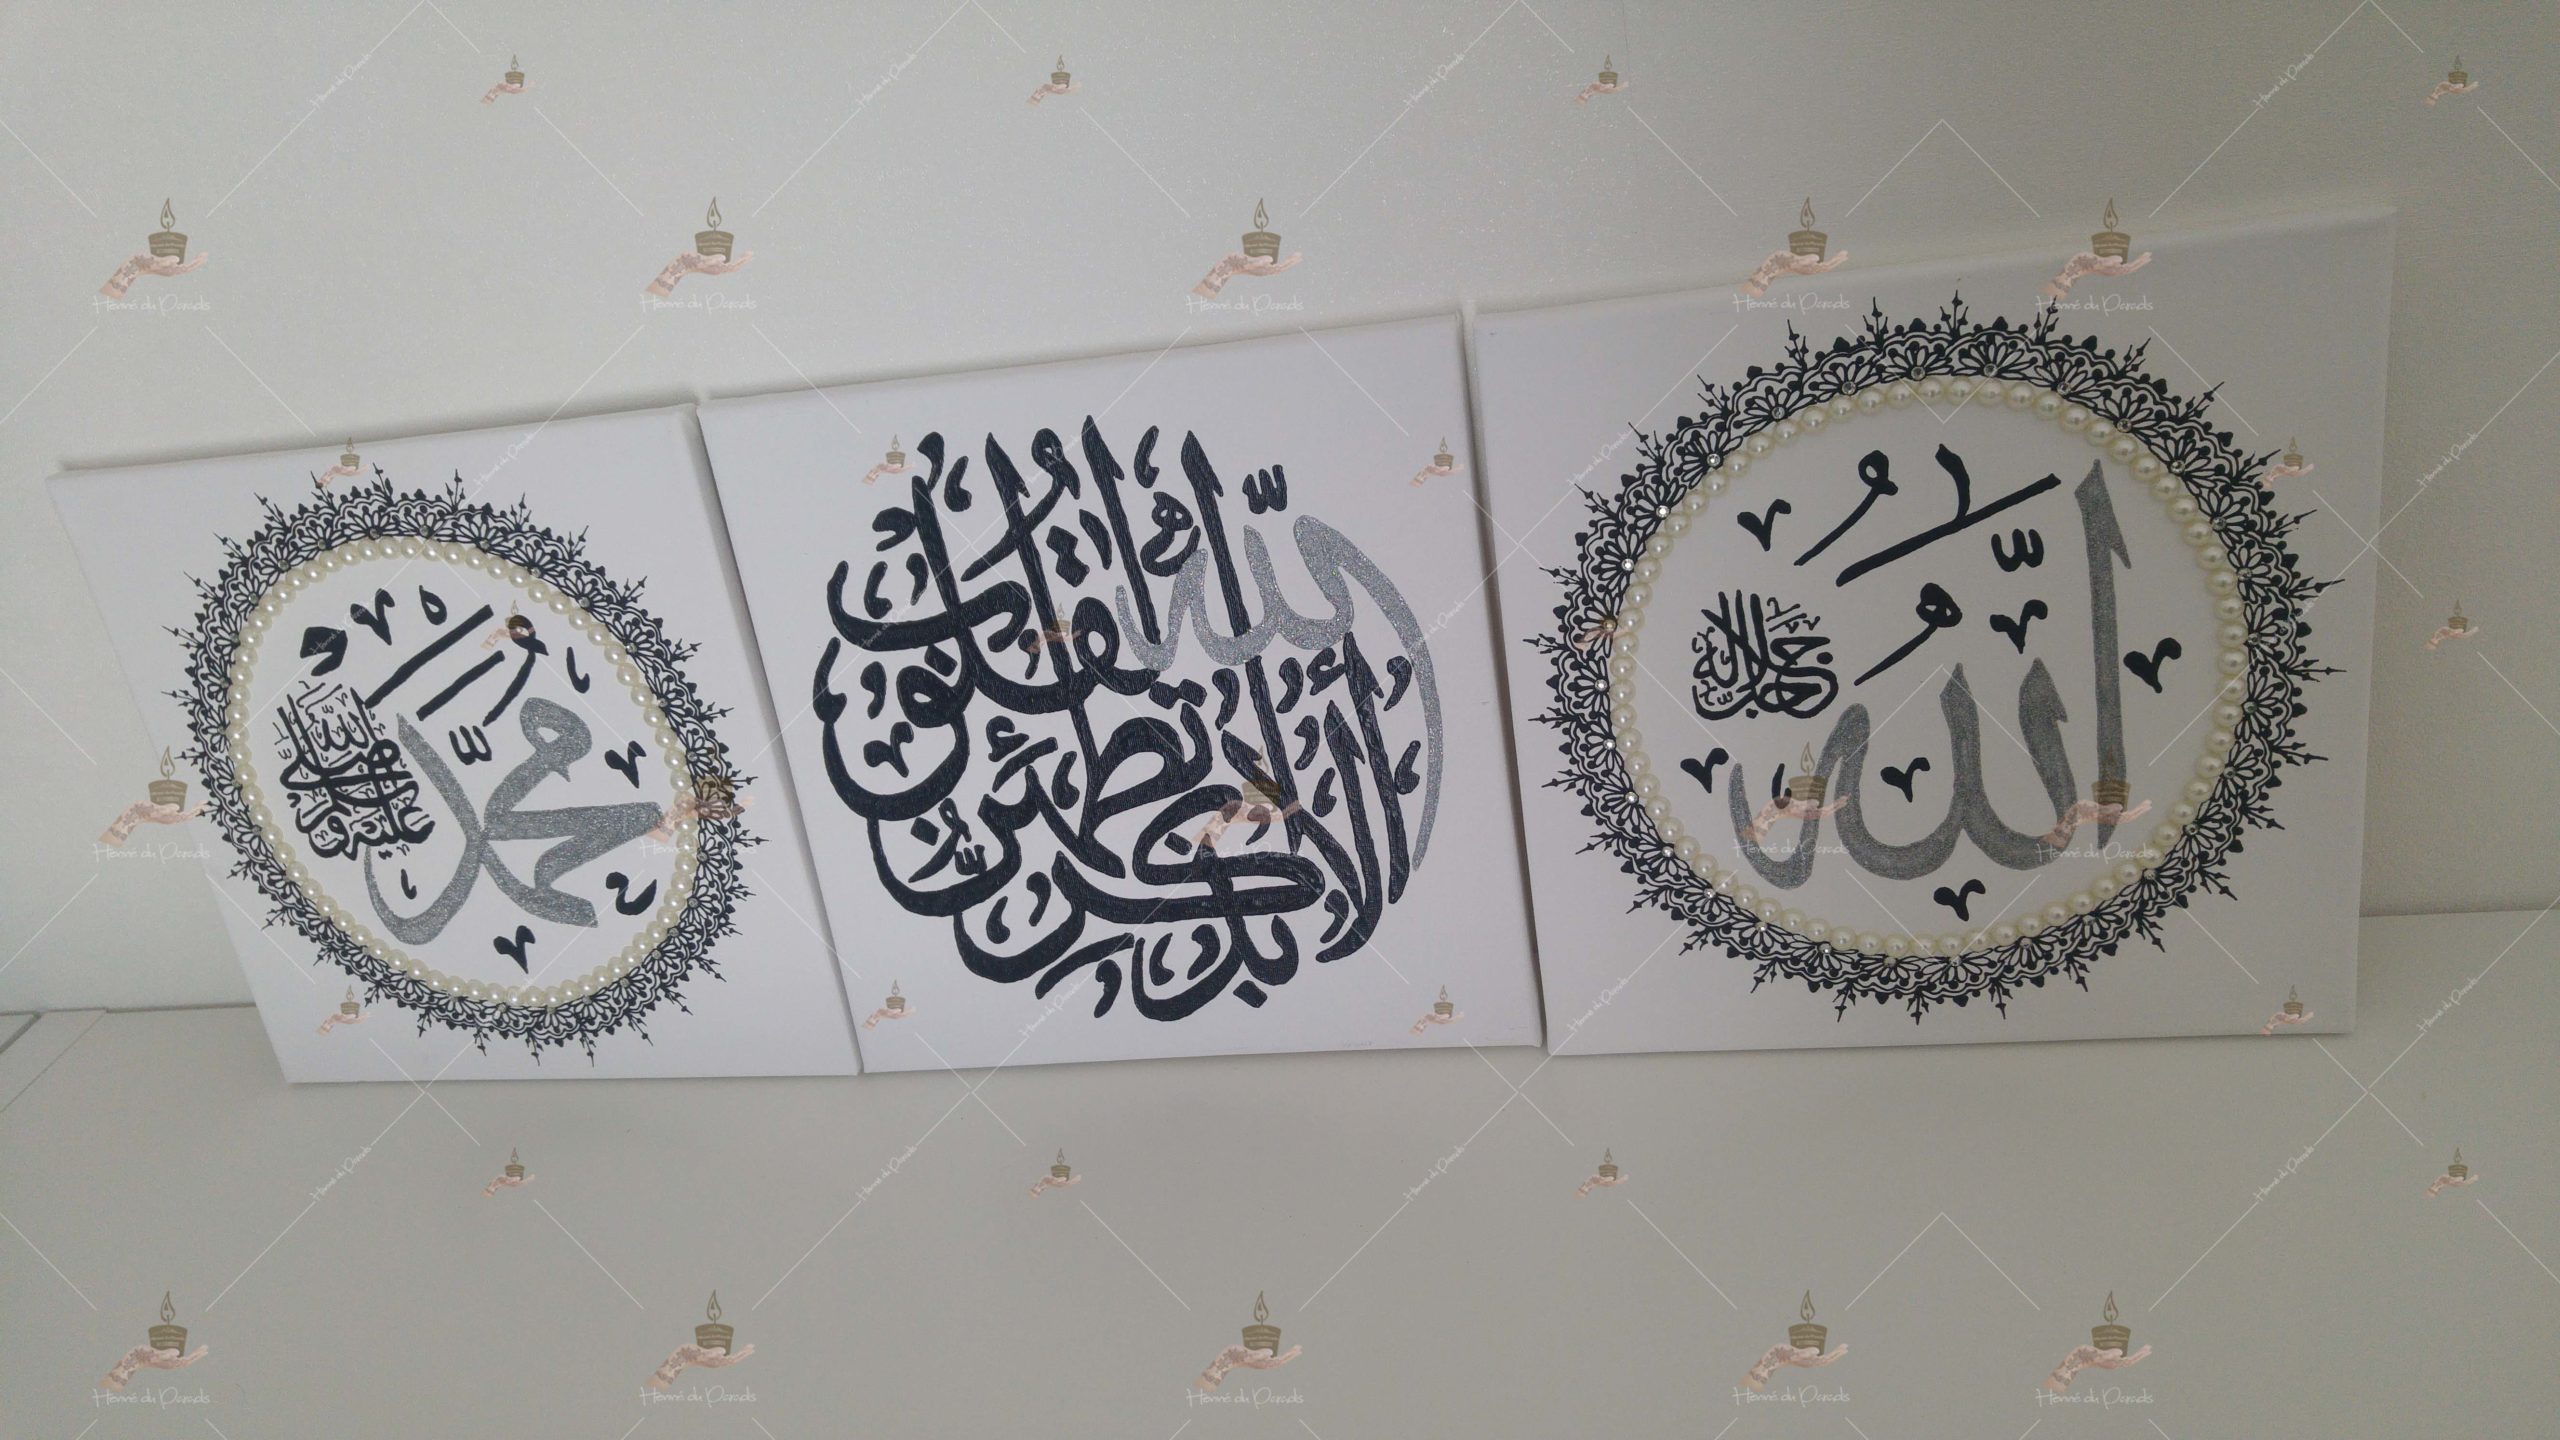 الله
جل جلاله
ألا بذكر الله تطمئن القلوب
محمد
صلى الله عليه وسلم
Henné du Paradis